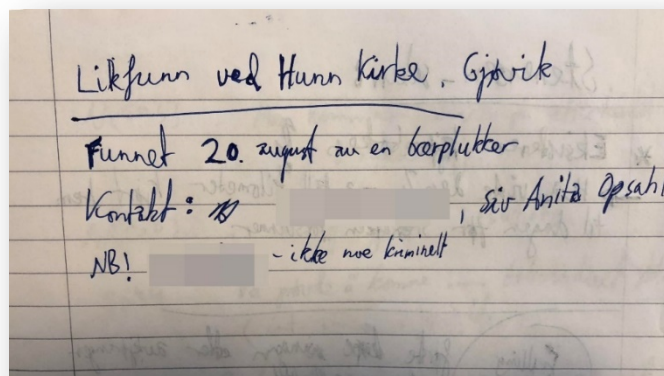 Likfunn ved Hunn Kirke, Gjøvik
Funnet 20. august av en bærplukker
Kontakt: , Siv Anita Opsahl
NB! - ikke noe kriminelt